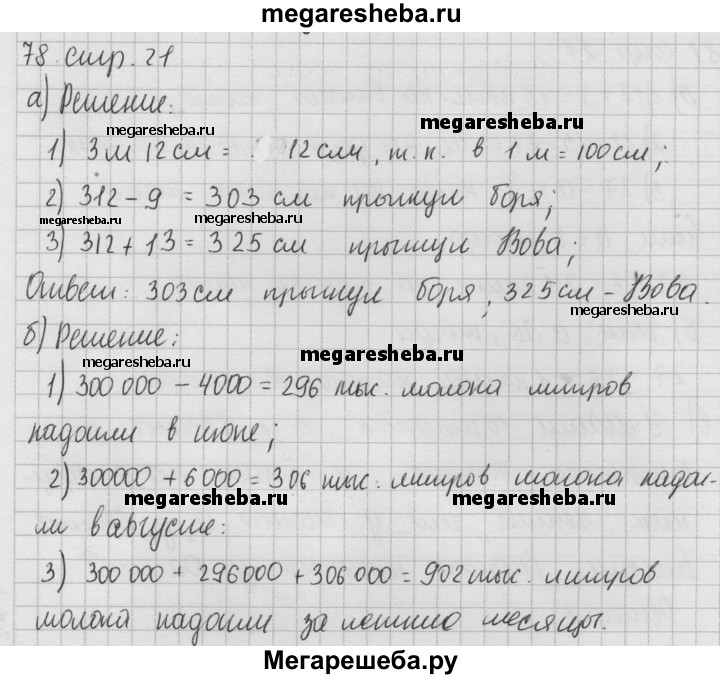 megaresheba.ru
78. стр. 21
а) Решение:
megaresheba.ru megaresheba.ru
1) 3м 12см = 12см, т.к. в 1м = 100см;
2) 312 - 9 = 303 см прыгнул боря;
megaresheba.ru megaresheba.ru
3) 312 + 13 = 325 см прыгнул Вова;
Ответ: 303см прыгнул боря, 325см - Вова.
megaresheba.ru
б) Решение:
megaresheba.ru megaresheba.ru
1) 300 000 - 4000 = 296 тыс. молока литров
надоили в июне;
2) 300000 + 6000 = 306 тыс. литров молока надои-
megaresheba.ru megaresheba.ru
ли в августе:
3) 300 000 + 296000 + 306 000 = 902 тыс. литров
молока надоили за летние месяцы.
Мегарешеба.ру